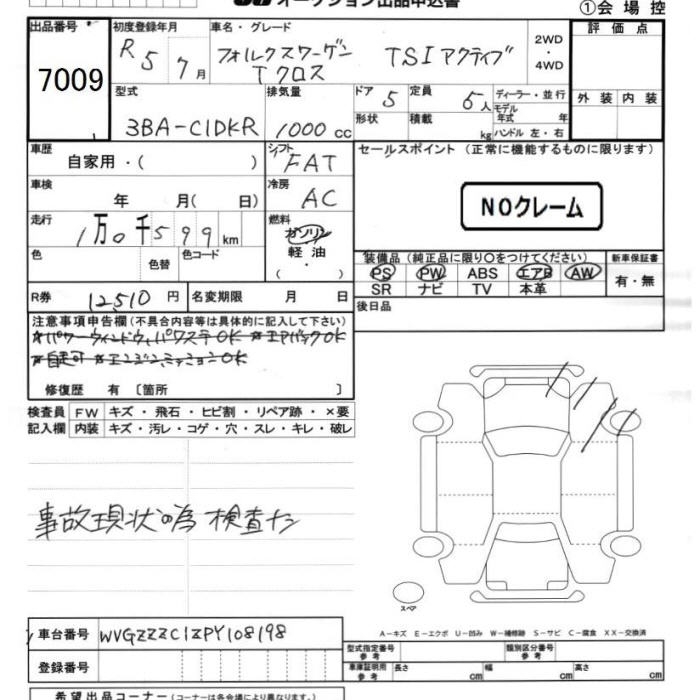 オークション出品申込書
①会場控
出品番号 初度登録年月 車名・グレード 2WD・4WD 評価点
7009 R 5 7月 フォルクスワーゲン Tクロス TSIアクティブ 外装 内装
型式 排気量 ドア 定員 ディーラー・並行
3BA-C1DKR 1000cc 5 5人 モデル年式 年
形状 積載 kg ハンドル 左・右
車歴 シフト セールスポイント (正常に機能するものに限ります)
自家用・( ) FAT
車検 冷房 NOクレーム
年 月( 日) AC
走行 燃料
1万0千599km ガソリン
色 色替 色コード 軽油
・
( )
装備品(純正品に限り○をつけてください) 新車保証書
PS PW ABS エアB AW 有・無
SR ナビ TV 本革
R券 12510円 名変期限 月 日 後日品
注意事項申告欄(不具合内容等は具体的に記入して下さい)
*パワーウィンドウ、パワステOK *エアバックOK
*自走可 *エンジン、ミッションOK
修復歴 有 〔箇所 〕
検査員 FW キズ・飛石・ヒビ割・リペア跡・×要
記入欄 内装 キズ・汚レ・コゲ・穴・スレ・キレ・破レ
事故現状の為 検査ナシ
スペア
A-キズ E-エクボ U-凹み W-補修跡 S-サビ C-腐食 XX-交換済
車台番号 WVGZZZC1ZPY108198
型式指定番号 参考 類別区分番号 参考
登録番号
車庫証明用 参考 長さ cm 幅 cm 高さ cm
希望出品コーナー(コーナーは各会場により異なります。)